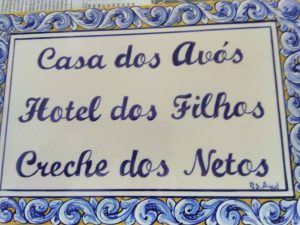 Casa dos Avós
Hotel dos Filhos
Creche dos Netos